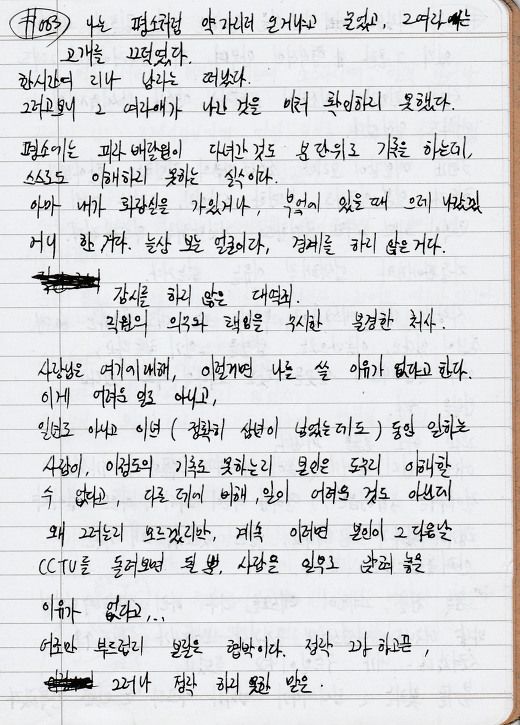 #063) 나는 평소처럼 약 가지러 온거냐고 물었고, 그여자애는
고개를 끄덕였다.
한시간여 지나 남자는 떠났다.
그러고보니 그 여자애가 나간 것을 미처 확인하지 못했다.
평소에는 피자 배달원이 다녀간것도 분 단위로 기록을 하는데,
스스로도 이해하지 못하는 실수이다.
아마 내가 화장실을 가있거나, 부엌에 있을 때 쯤에 나갔겠
거니 한 거다. 늘상 보는 얼굴이다, 경계를 하지 않은 거다.
감시를 하지 않은 대역죄.
직원의 의무와 책임을 무시한 불경한 처사.
사장님은 여기에 대해, 이럴거면 나를 쓸 이유가 없다고 한다.
이게 어려운 일도 아니고,
일년도 아니고 이년 ( 정확히 삼년이 넘었는데도 ) 동안 일하는
사람이, 이정도의 기록도 못하는지 본인은 도무지 이해할
수 없다고, 다른 데에 비해, 일이 어려운 것도 아닌데
왜 그러는지 모르겠지만, 계속 이러면 본인이 그 다음날
CCTV를 돌려보면 될 뿐, 사람을 일부러 앉혀 놓을
이유가 없다고...
어조만 부드럽지 본질은 협박이다. 정작 그가 하고픈,
그러나 정작 하지 못한 말은.